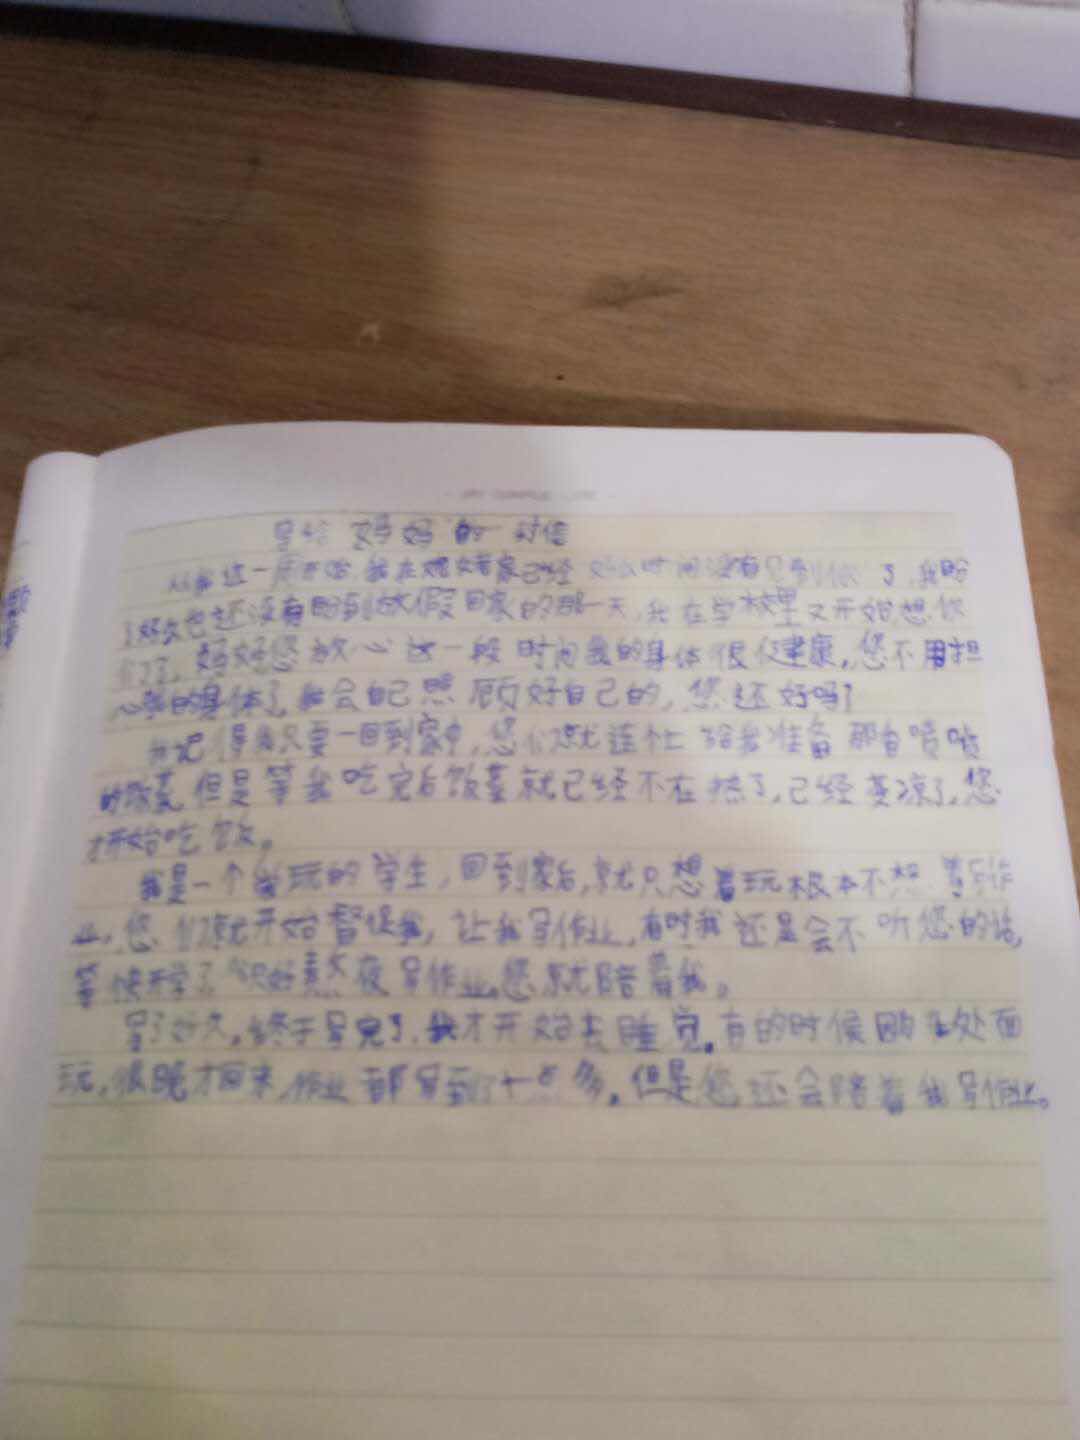 写给妈妈的一封信
从这一周开始,我在姥姥家已经好久时间没有见到你了,我盼
了好久也还没有盼到放假回家的那一天,我在学校里又开始想你
们了。妈妈您放心这一段时间我的身体很健康,您不用担
心我的身体了,我会自己照顾好自己的,您还好吗?
我记得我只要一回到家中,您们就连忙给我准备那香喷喷
的饭菜,但是等我吃完后饭菜就已经不在热了,已经变凉了,您
才开始吃饭。
我是一个贪玩的学生,回到家后,就只想着玩根本不想着写作
业,您们就开始督促我,让我写作业,有时我还是会不听您的话,
等快开学了只好熬夜写作业,您就陪着我。
写了好久,终于写完了,我才开始去睡觉。有的时候跑处面
玩,很晚才回来,作业都写到了十点多。但是您还会陪着我写作业。